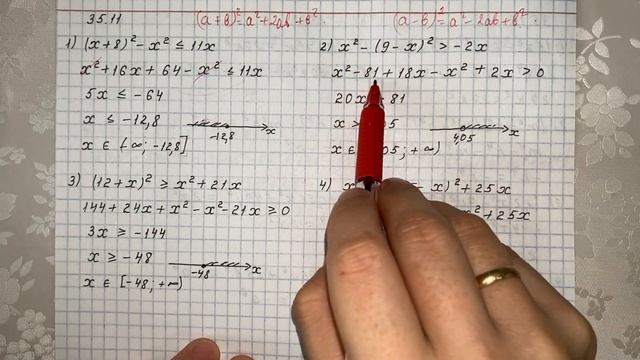 35.11 (a+b)²=a²+2ab+b² (a-b)²=a²-2ab+b²
1) (x+8)² - x² ≤ 11x
x² + 16x + 64 - x² ≤ 11x
5x ≤ -64
x ≤ -12,8
-12,8 x
x ∈ (-∞; -12,8]
2) x² - (9-x)² > -2x
x² - 81 + 18x - x² + 2x > 0
20x 81
x > 05
4,05 x
x ∈ 05; +∞)
3) (12+x)² ≥ x² + 21x
144 + 24x + x² - x² - 21x ≥ 0
3x ≥ -144
x ≥ -48
-48 x
x ∈ [-48; +∞)
4) x - x)² + 25x
x² + 25x